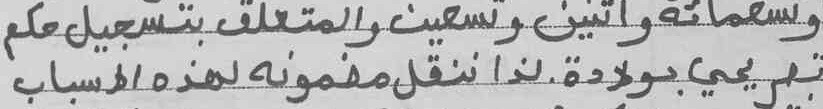 وتسعمائة واثنين وتسعين والمتعلق بتسجيل حكم
تصريحي بولادة. لذا ننقل مضمونه لهذه الاسباب